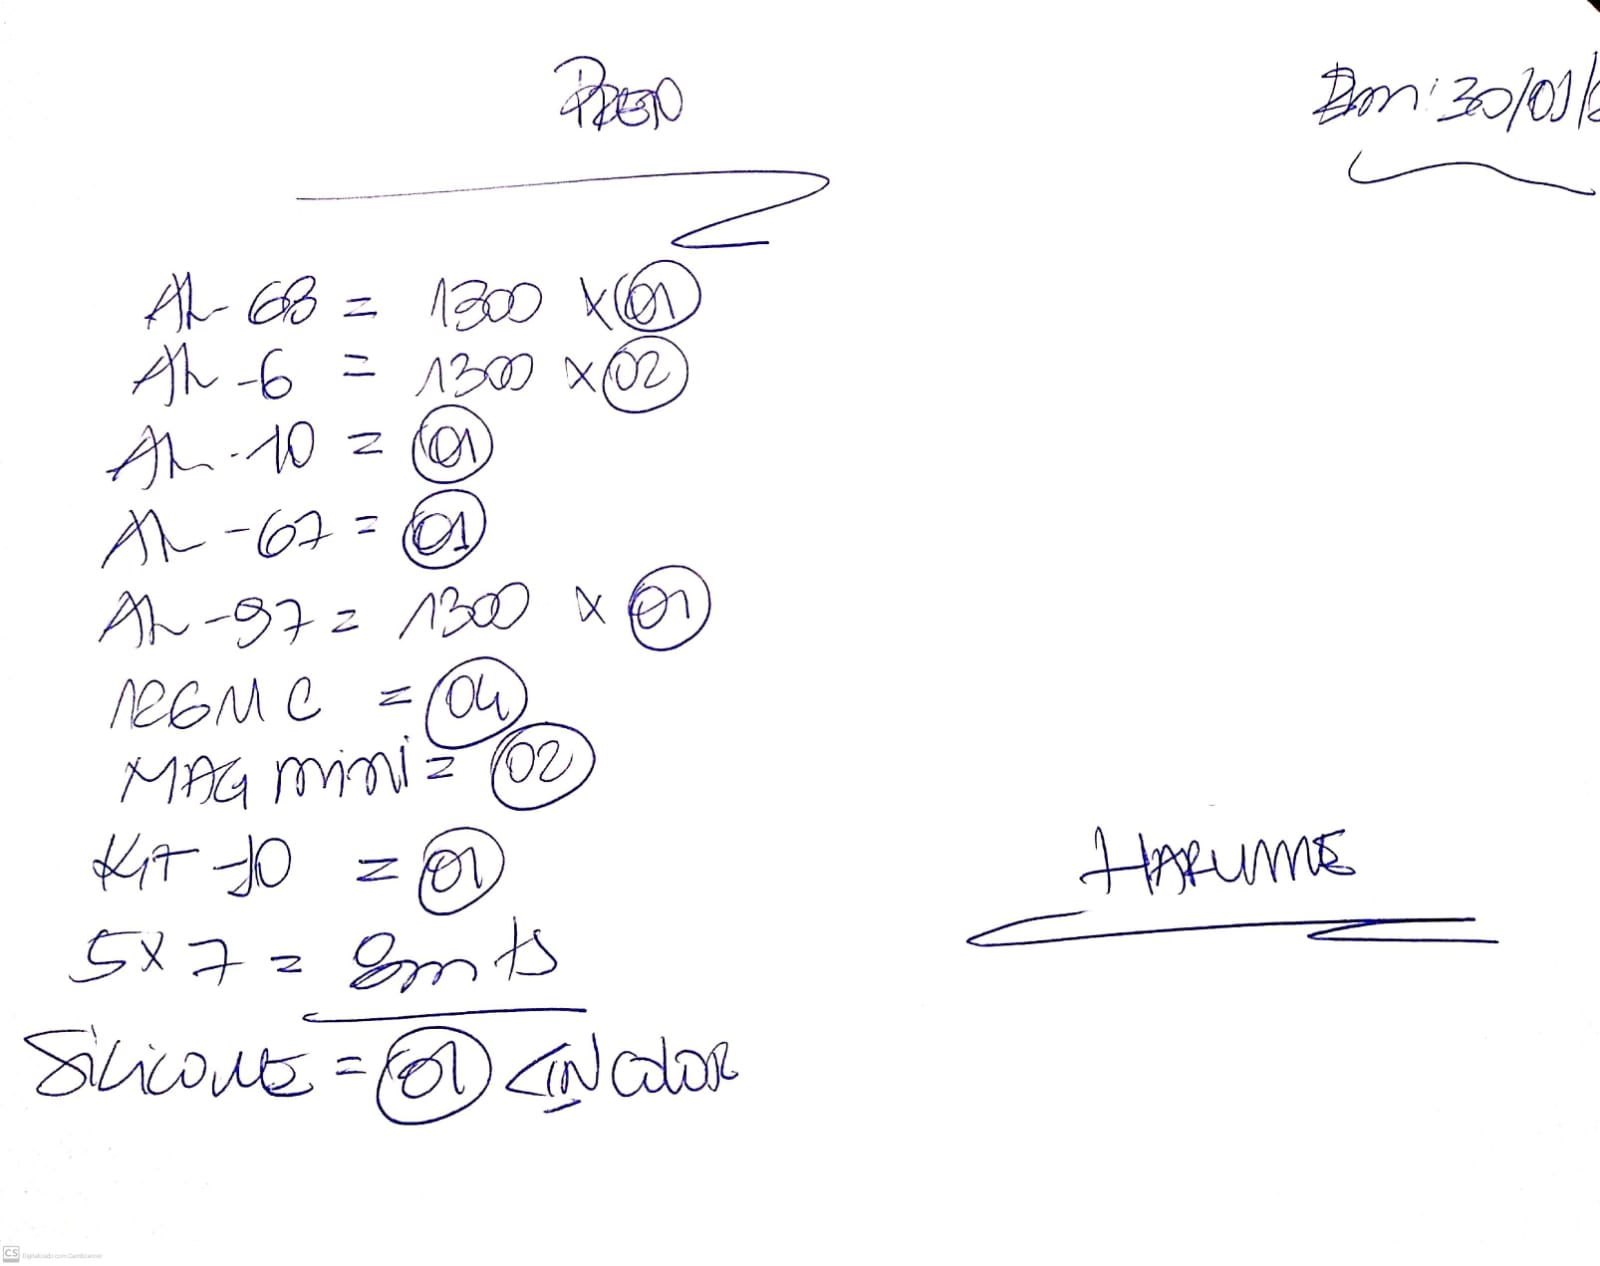 Em: 30/01/
AL-68 = 1300 x 01
AL-6 = 1300 x 02
AL-10 = 01
AL-67 = 01
AL-97 = 1300 x 01
MAG mini = 02
KIT-10 = 01
5x7 = 8mts
SILICONE = 01 <INCOLOR
HARUME
CS Digitalizado com CamScanner